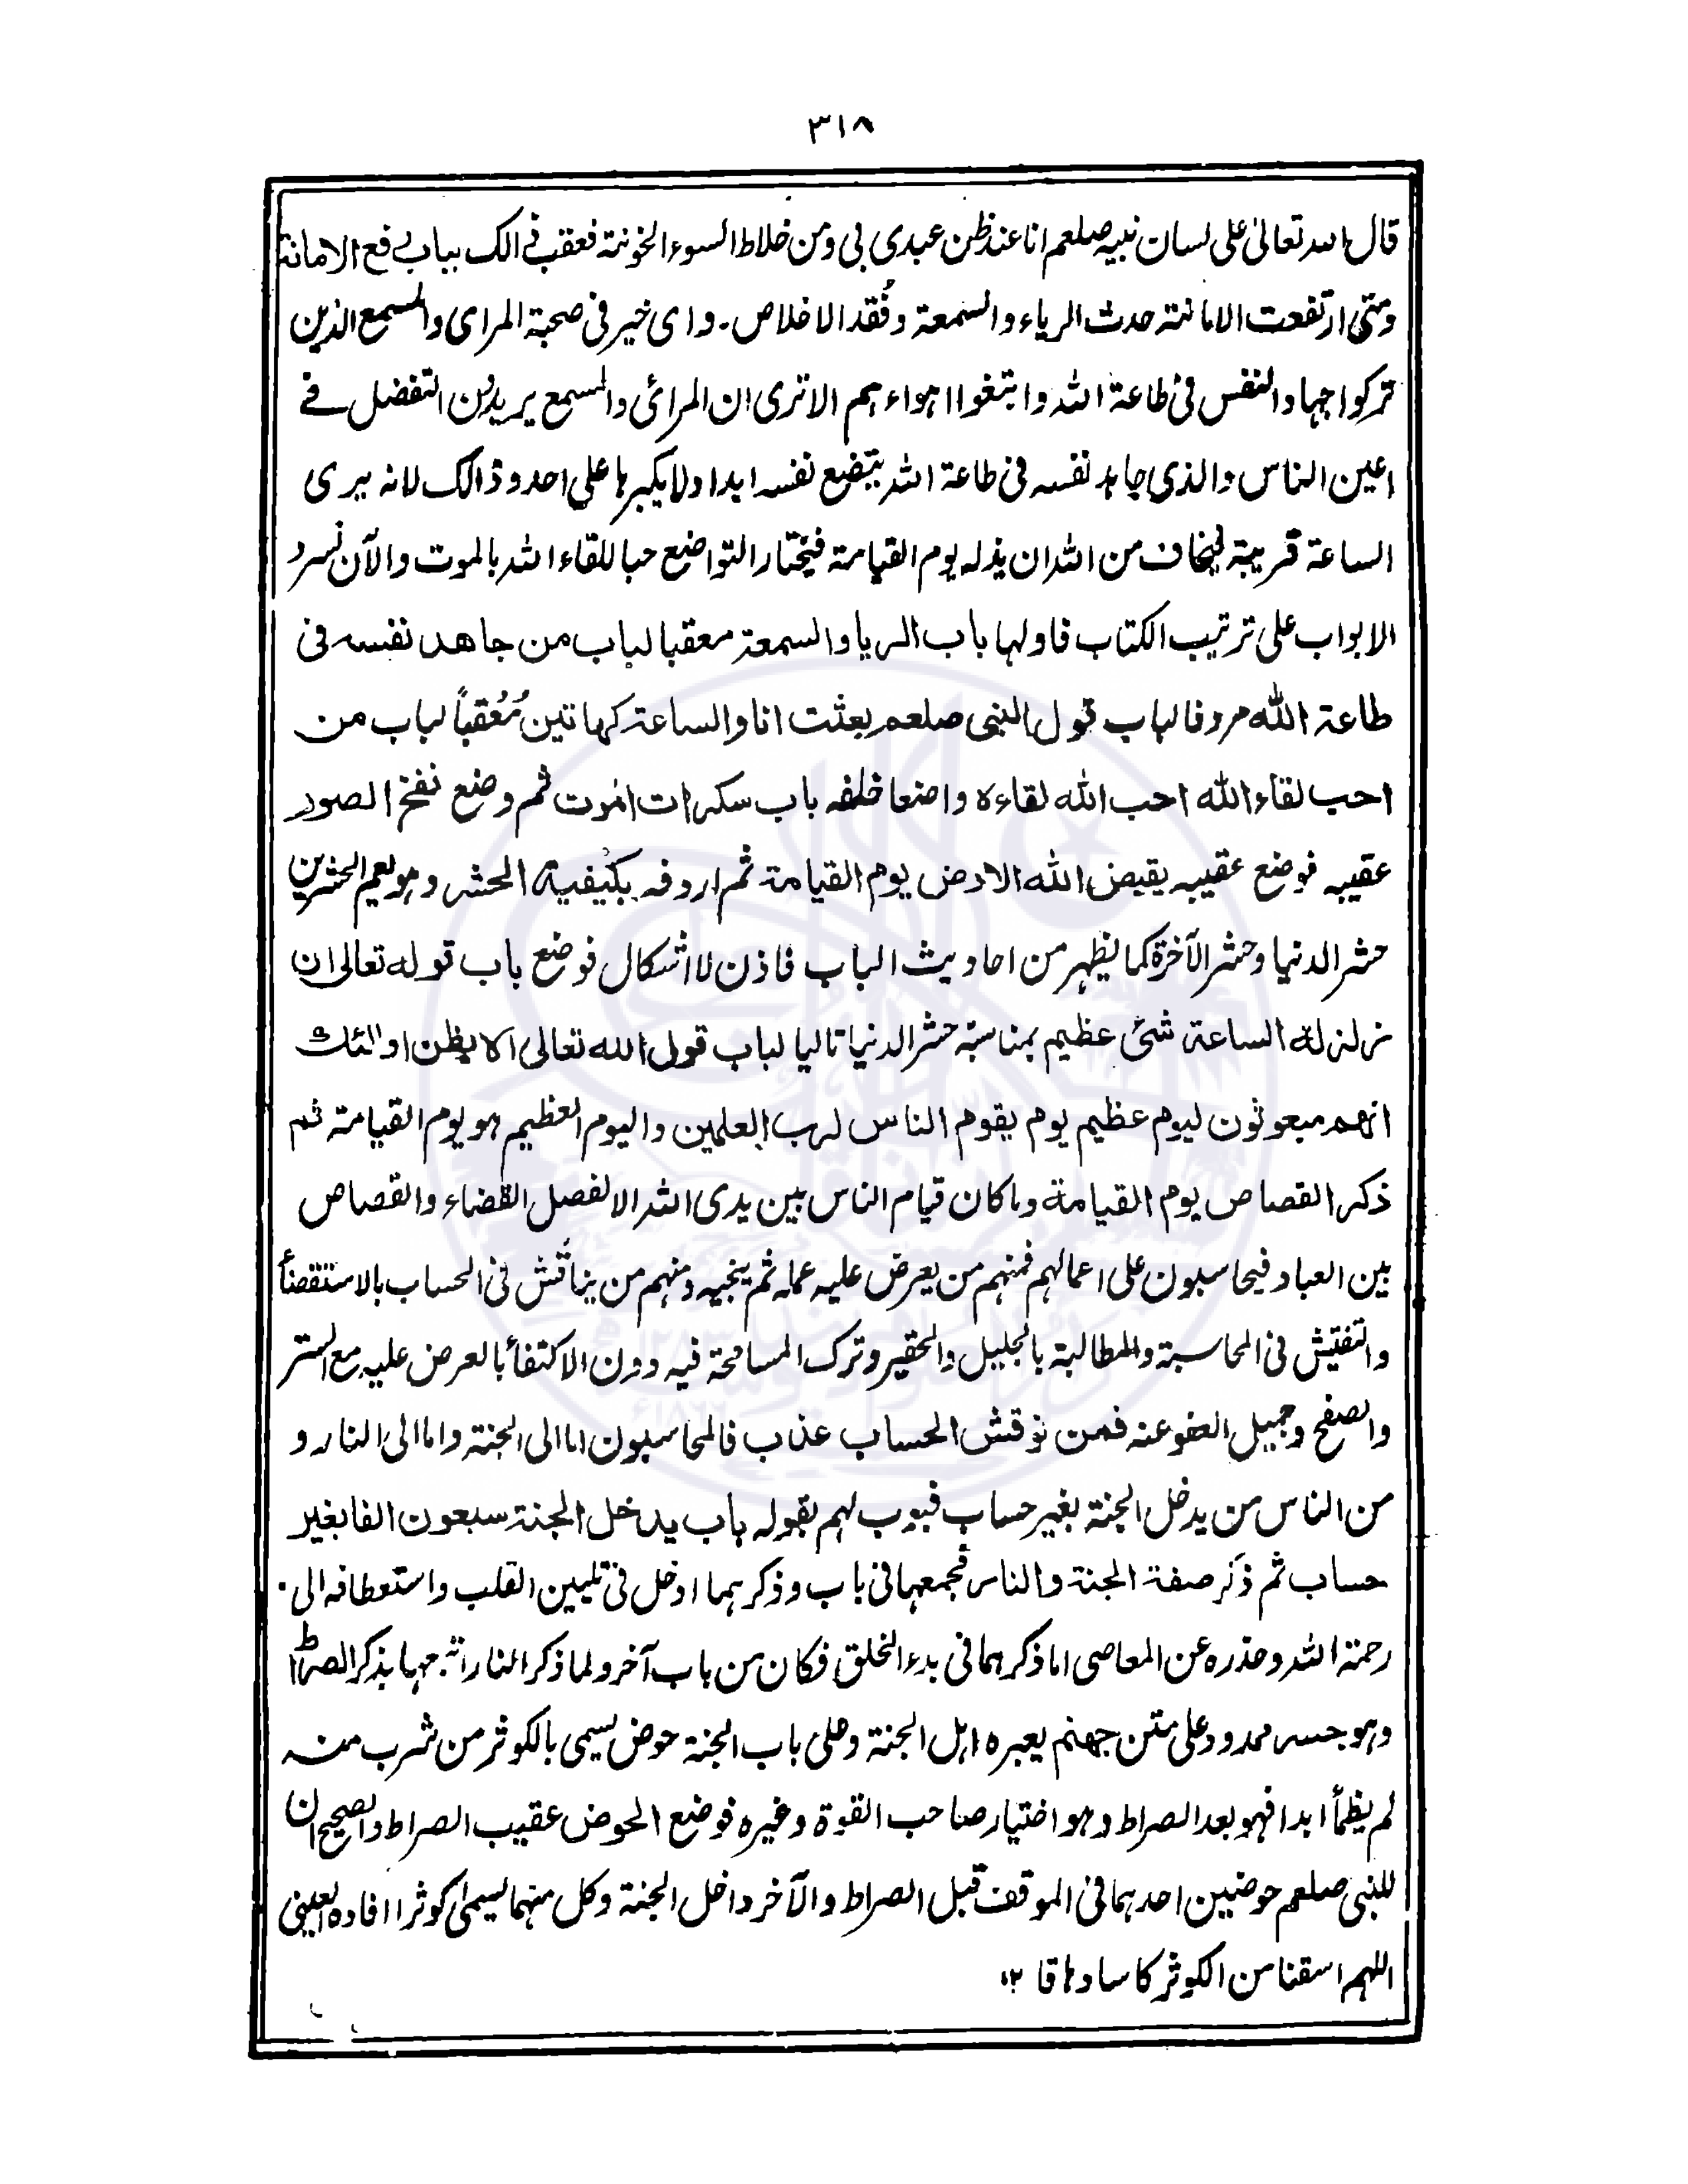 ٣١٨
قال الله تعالىٰ على لسان نبيه صلعم انا عند ظن عبدى بى ومن خلاط السوء الخونة فعقب ذالك بباب رفع الامانة
ومتى ارتفعت الامانة حدث الرياء والسمعة وفُقد الاخلاص۔ واى خير فى صحبة المراى والمسمع الذين
تركوا جهاد النفس فى طاعة الله وابتغوا اهواءهم الا ترى ان المرائى والمسمع يريدون التفضل فے
اعين الناس والذى جاهد نفسه فى طاعة الله يتضع نفسه ابدا ولا يكبرها على احد وذالك لانه يرى
الساعة قريبة ليخاف من الله ان يذله يوم القيامة فيختار التواضع حبا للقاء الله بالموت والآن نسرد
الابواب على ترتيب الكتاب فاولها باب الريا والسمعة معقبا لباب من جاهد نفسه فى
طاعة الله مردفا لباب قول النبى صلعم بعثت انا والساعة كهاتين مُعُقباً لباب من
احب لقاء الله احب الله لقاءه واضعا خلفه باب سكرات الموت ثم وضع نفخ الصور
عقيبه فوضع عقيبه يقبض الله الارض يوم القيامة ثم اردفه بكيفية الحشر وهو يعم الحشرين
حشر الدنيا وحشر الآخرة كما يظهر من احاديث الباب فاذن لا اشكال فوضع باب قوله تعالى ان
زلزلة الساعة شئ عظيم بمناسبة حشر الدنيا تاليا لباب قول الله تعالى الا يظن اولئك
انهم مبعوثون ليوم عظيم يوم يقوم الناس لرب العلمين واليوم العظيم هو يوم القيامة ثم
ذكر القصاص يوم القيامة وما كان قيام الناس بين يدى الله الا لفصل القضاء والقصاص
بين العباد فيحاسبون على اعمالهم فمنهم من يعرض عليه عمله ثم ينجيه ومنهم من يناقش فى الحساب بالاستقصاأ
والتفتيش فى المحاسبة والمطالبة بالجليل والحقير وترك المسامحة فيه دون الاكتفاأ بالعرض عليه مع الستر
والصفح وجميل العفو عنه فمن نوقش الحساب عذب فالمحاسبون اما الى الجنة واما الى النار و
من الناس من يدخل الجنة بغير حساب فبوب لهم بقوله باب يدخل الجنة سبعون الفا بغير
حساب ثم ذكر صفة الجنة والنار فجمعهما فى باب وذكرهما ادخل فى تليين القلب واستعطافه الى
رحمة الله وحذره عن المعاصى اما ذكرهما فى بدء الخلق فكان من باب آخر ولما ذكر النار اتبعها بذكر الصراط
وهو جسر ممدود على متن جهنم يعبره اهل الجنة وعلى باب الجنة حوض يسمى بالكوثر من شرب منه
لم يظمأ ابدا فهو بعد الصراط وهو اختيار صاحب القوة وغيره فوضع الحوض عقيب الصراط والصحيح ان
للنبى صلعم حوضين احدهما فى الموقف قبل الصراط والآخر داخل الجنة وكل منهما يسمىٰ كوثرا افاده العينى
اللهم اسقنا من الكوثر كاسا دهاقا ١٢